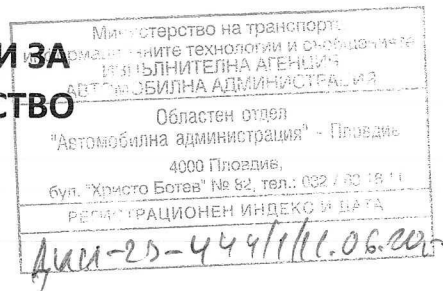 И ЗА
СТВО
Министерство на транспорта
информационните технологии и съобщенията
ИЗПЪЛНИТЕЛНА АГЕНЦИЯ
АВТОМОБИЛНА АДМИНИСТРАЦИЯ
Областен отдел
"Автомобилна администрация" - Пловдив
4000 Пловдив,
бул. "Христо Ботев" № 82, тел.: 032 /
РЕГИСТРАЦИОННЕН ИНДЕКС И ДАТА